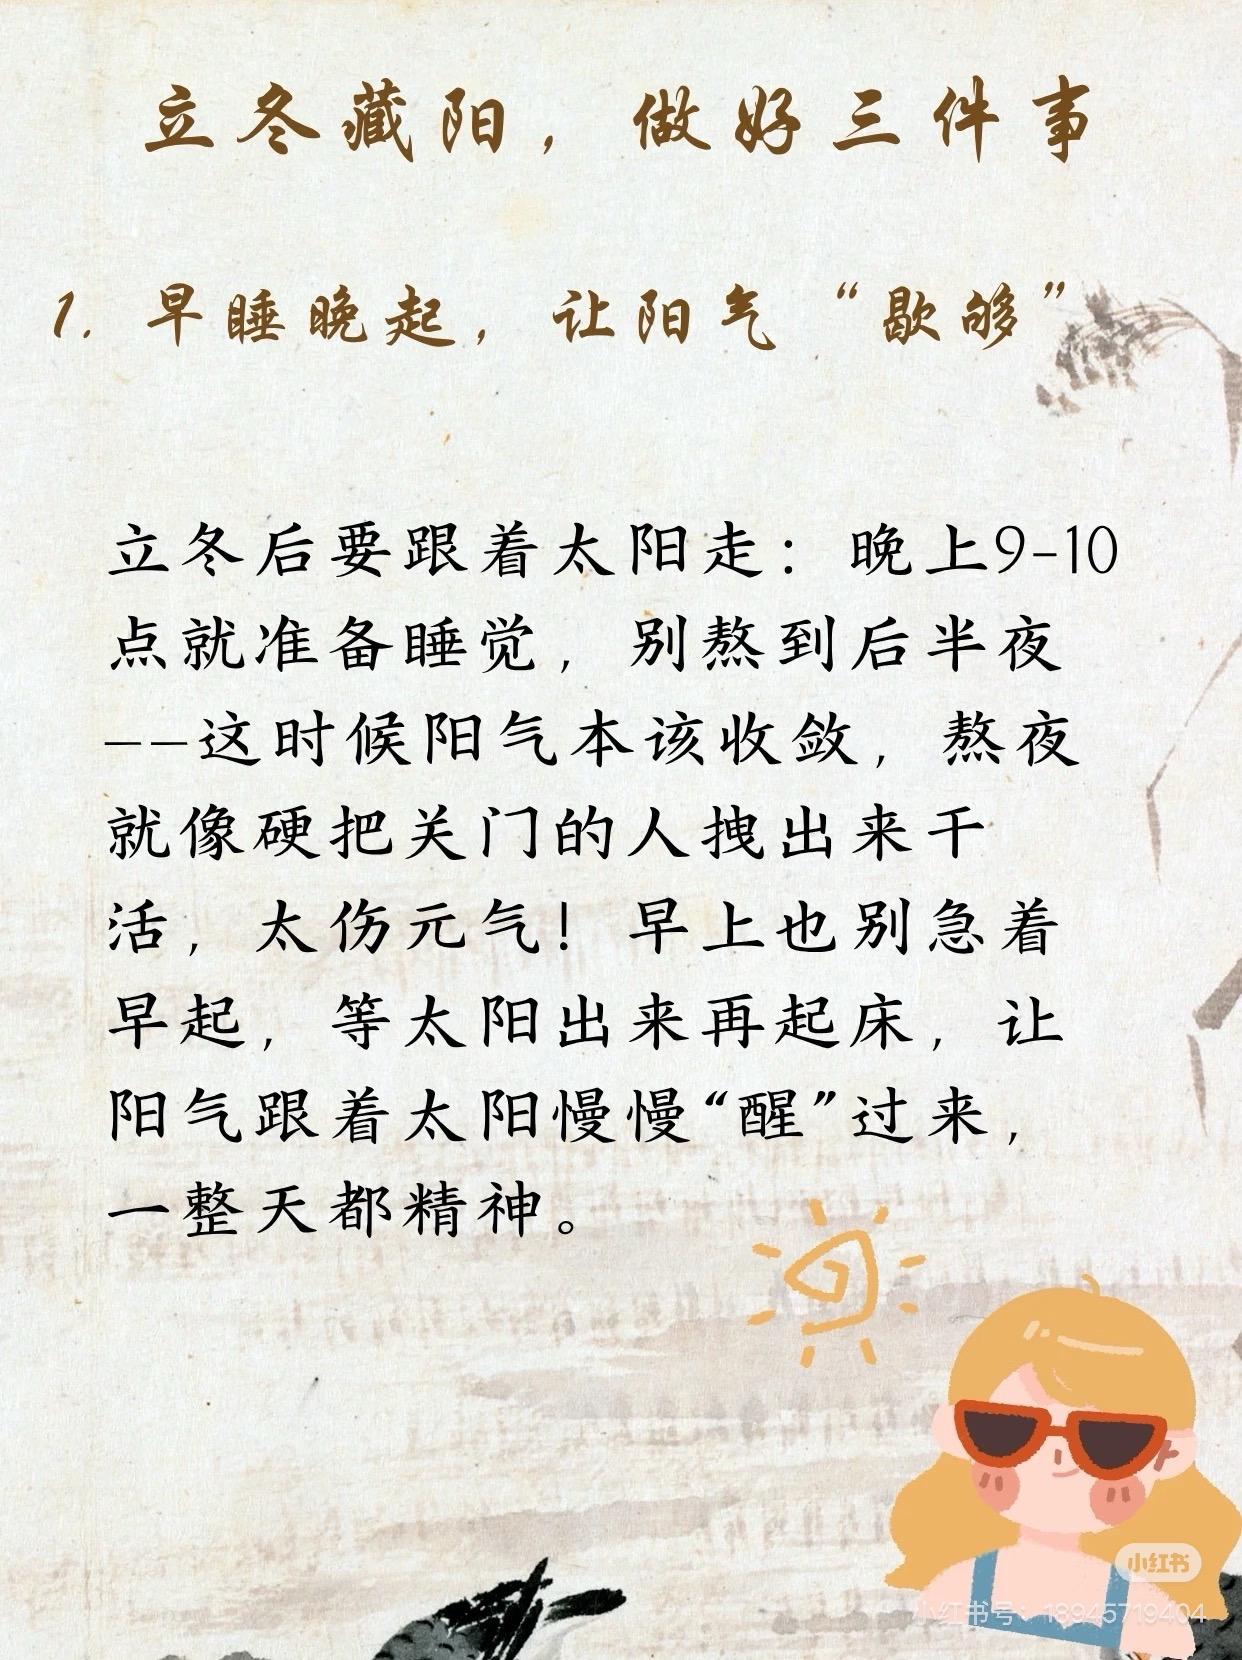 立冬藏阳，做好三件事
1. 早睡晚起，让阳气“歇够”
立冬后要跟着太阳走：晚上9-10
点就准备睡觉，别熬到后半夜
——这时候阳气本该收敛，熬夜
就像硬把关门的人拽出来干
活，太伤元气！早上也别急着
早起，等太阳出来再起床，让
阳气跟着太阳慢慢“醒”过来，
一整天都精神。
小红书
小红书号：18945719404